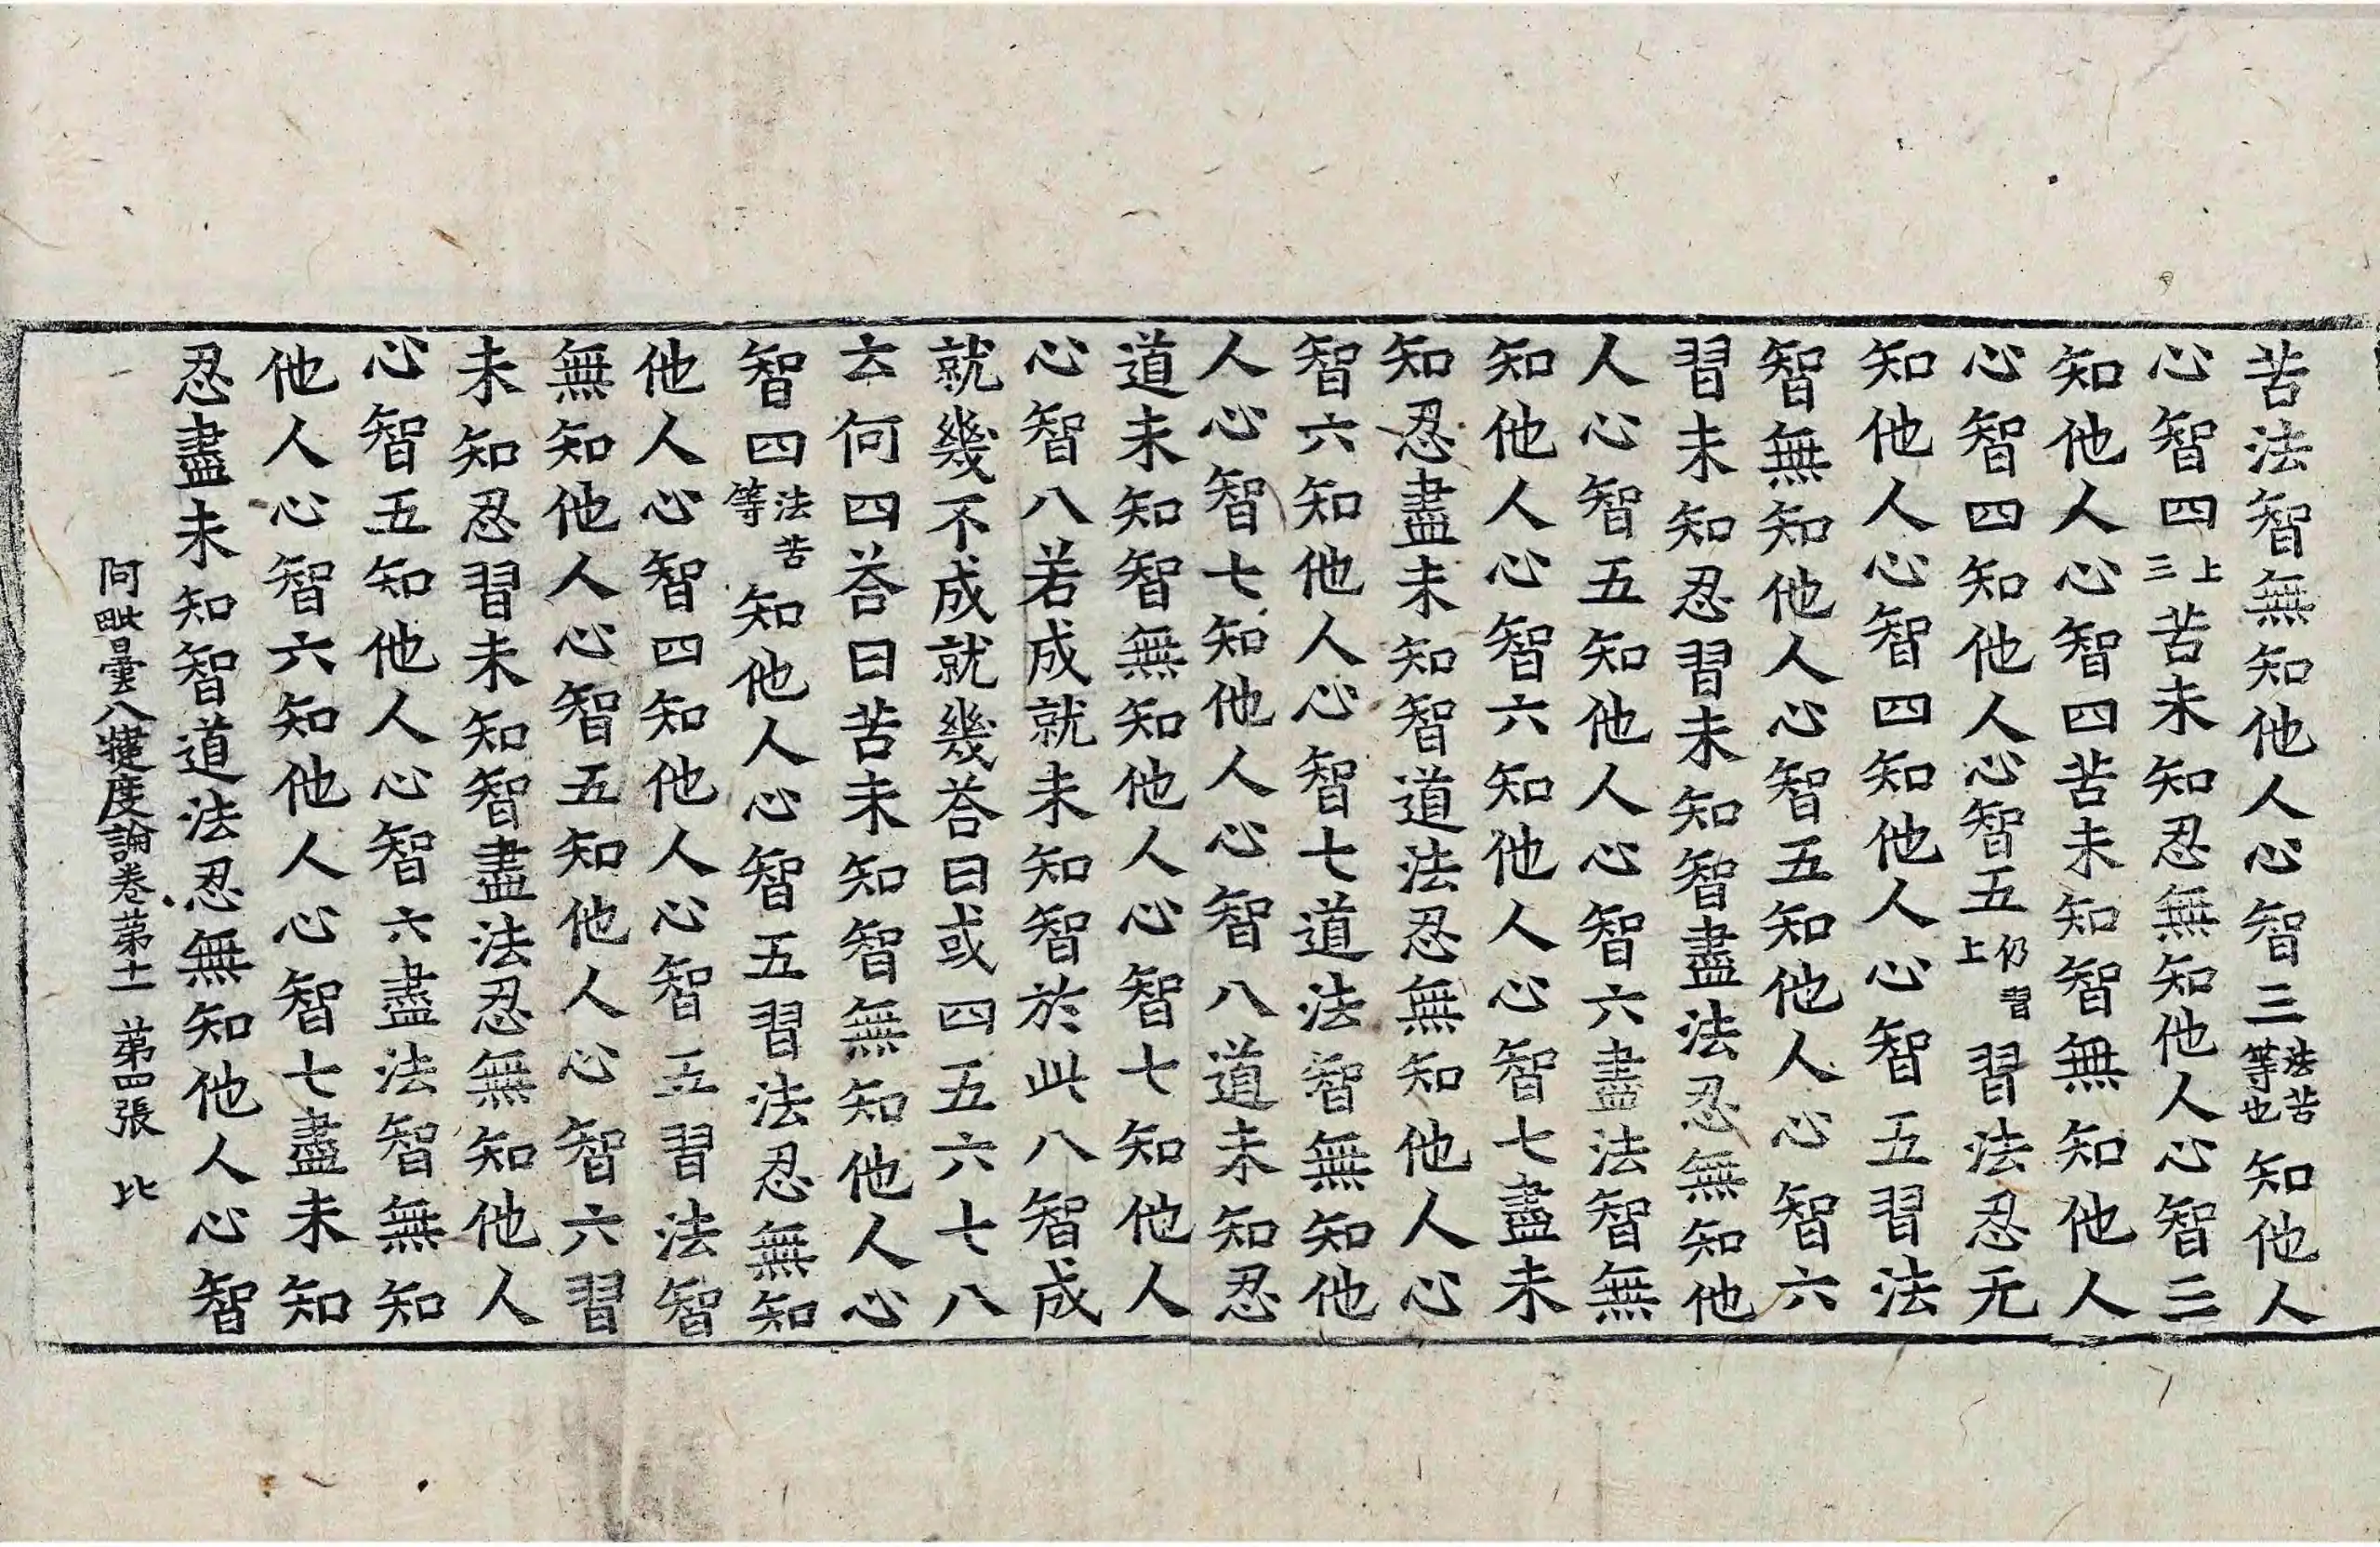 苦法智無知他人心智三法苦等也知他人
心智四上三苦未知忍無知他人心智三
知他人心智四苦未知智無知他人
心智四知他人心智五仍習上習法忍无
知他人心智四知他人心智五習法
智無知他人心智五知他人心智六
習未知忍習未知智盡法忍無知他
人心智五知他人心智六盡法智無
知他人心智六知他人心智七盡未
知忍盡未知智道法忍無知他人心
智六知他人心智七道法智無知他
人心智七知他人心智八道未知忍
道未知智無知他人心智七知他人
心智八若成就未知智於此八智成
就幾不成就幾荅曰或四五六七八
云何四荅曰苦未知智無知他人心
智四法苦等知他人心智五習法忍無知
他人心智四知他人心智五習法智
無知他人心智五知他人心智六習
未知忍習未知智盡法忍無知他人
心智五知他人心智六盡法智無知
他人心智六知他人心智七盡未知
忍盡未知智道法忍無知他人心智
阿毗曇八揵度論卷苐十一 苐四張 比